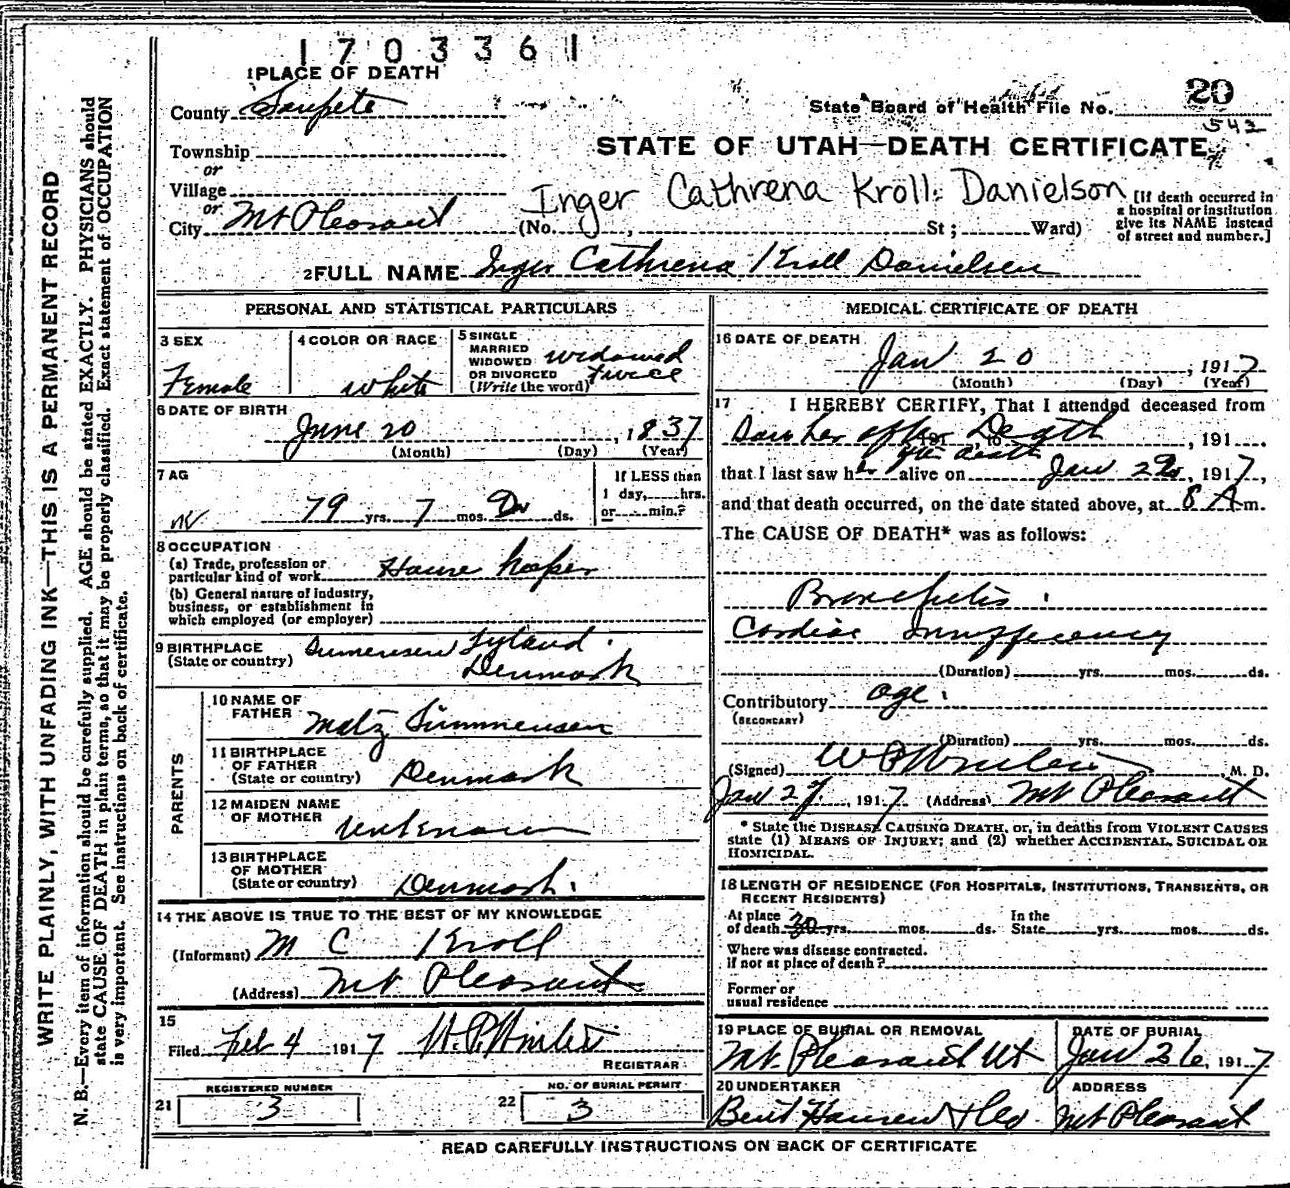 1703361
1 PLACE OF DEATH
County Sanpete
State Board of Health File No. 20
542
STATE OF UTAH—DEATH CERTIFICATE
Township
or
Village
or
City Mt Pleasant
Inger Cathrena Kroll Danielson
(No. , St; Ward)
[If death occurred in
a hospital or institution
give its NAME instead
of street and number.]
2 FULL NAME Inger Cathrena Kroll Danielsen
PERSONAL AND STATISTICAL PARTICULARS
3 SEX
Female
4 COLOR OR RACE
white
5 SINGLE
MARRIED
WIDOWED
OR DIVORCED
(Write the word)
widowed
twice
6 DATE OF BIRTH
June 20, 1837
(Month) (Day) (Year)
7 AG
79 yrs. 7 mos. ds.
If LESS than
1 day, hrs.
or min.?
8 OCCUPATION
(a) Trade, profession or
particular kind of work House keeper
(b) General nature of industry,
business, or establishment in
which employed (or employer)
9 BIRTHPLACE
(State or country)
Denmark
PARENTS
10 NAME OF
FATHER Matz Simmensen
11 BIRTHPLACE
OF FATHER
(State or country) Denmark
12 MAIDEN NAME
OF MOTHER unknown
13 BIRTHPLACE
OF MOTHER
(State or country) Denmark.
14 THE ABOVE IS TRUE TO THE BEST OF MY KNOWLEDGE
(Informant) M C Kroll
(Address) Mt Pleasant
15
Filed Feb 4 1917 W.P. Winters
REGISTRAR
REGISTERED NUMBER
21 3
NO. OF BURIAL PERMIT
22 3
MEDICAL CERTIFICATE OF DEATH
16 DATE OF DEATH
Jan 20, 1917
(Month) (Day) (Year)
17 I HEREBY CERTIFY, That I attended deceased from
Saw her after Death, 191 , to , 191 .
after death
that I last saw her alive on Jan 20, 1917,
and that death occurred, on the date stated above, at 8 A m.
The CAUSE OF DEATH* was as follows:
Bronchitis
Cardiac Insufficency
(Duration) yrs. mos. ds.
Contributory age.
(SECONDARY)
(Duration) yrs. mos. ds.
(Signed) W P Winters M. D.
Jan 27, 1917 (Address) Mt Pleasant
* State the DISEASE CAUSING DEATH, or, in deaths from VIOLENT CAUSES
state (1) MEANS OF INJURY; and (2) whether ACCIDENTAL, SUICIDAL OR
HOMICIDAL.
18 LENGTH OF RESIDENCE (FOR HOSPITALS, INSTITUTIONS, TRANSIENTS, OR
RECENT RESIDENTS)
At place
of death 30 yrs. mos. ds.
In the
State yrs. mos. ds.
Where was disease contracted.
if not at place of death?
Former or
usual residence
19 PLACE OF BURIAL OR REMOVAL
Mt. Pleasant Ut
DATE OF BURIAL
Jan 26, 1917
20 UNDERTAKER
Bent Hansen & Co
ADDRESS
Mt Pleasant
READ CAREFULLY INSTRUCTIONS ON BACK OF CERTIFICATE
WRITE PLAINLY, WITH UNFADING INK—THIS IS A PERMANENT RECORD
N. B.—Every item of information should be carefully supplied. AGE should be stated EXACTLY. PHYSICIANS should
state CAUSE OF DEATH in plain terms, so that it may be properly classified. Exact statement of OCCUPATION
is very important. See instructions on back of certificate.